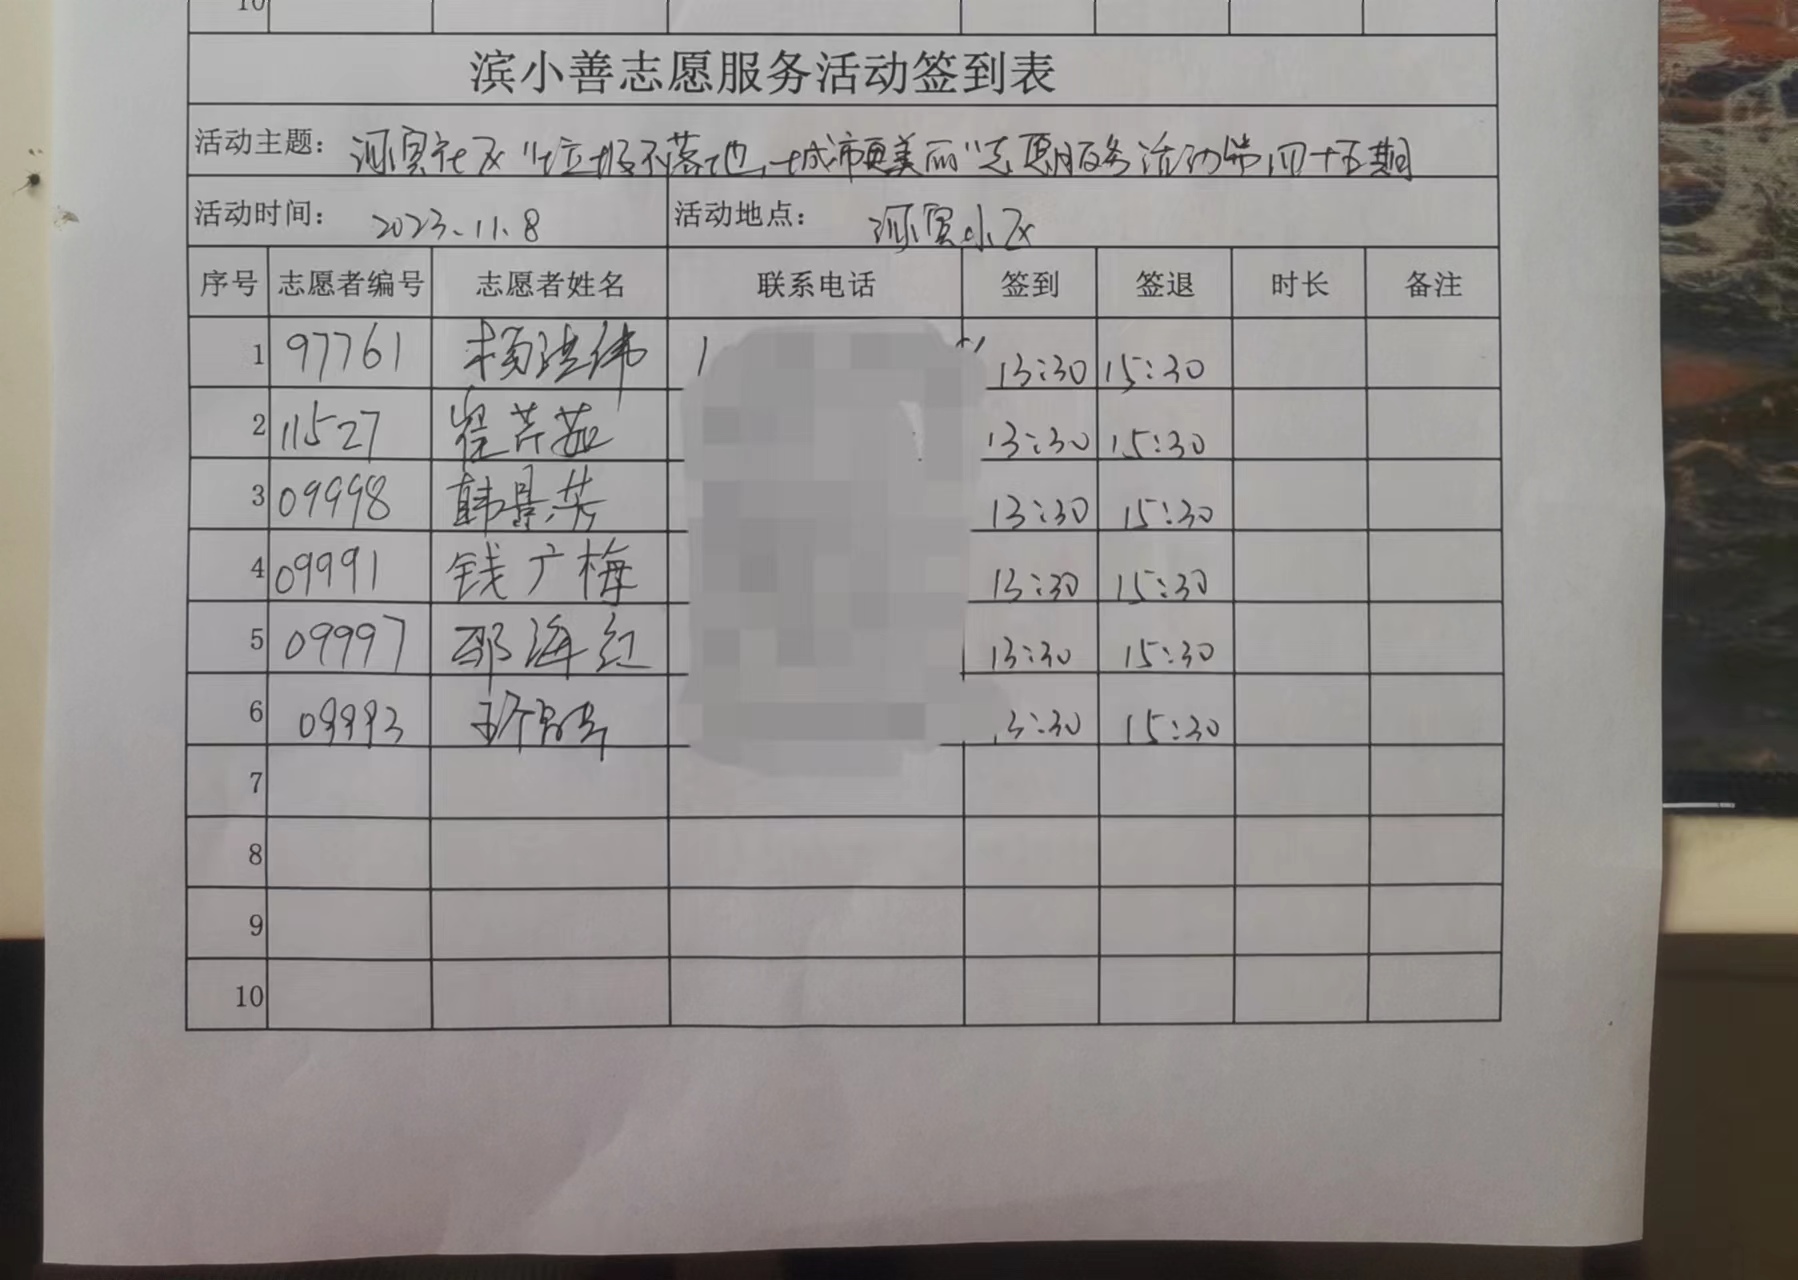 10
滨小善志愿服务活动签到表
活动主题: 河滨社区"垃圾不落地,城市更美丽"志愿服务活动第四十五期
活动时间: 2023.11.8 活动地点: 河滨小区
序号 志愿者编号 志愿者姓名 联系电话 签到 签退 时长 备注
1 97761 杨洪伟 1 13:30 15:30
2 11527 崔芹茹 13:30 15:30
3 09998 韩景芬 13:30 15:30
4 09991 钱广梅 13:30 15:30
5 09997 邵海红 13:30 15:30
6 09993 3:30 15:30
7
8
9
10